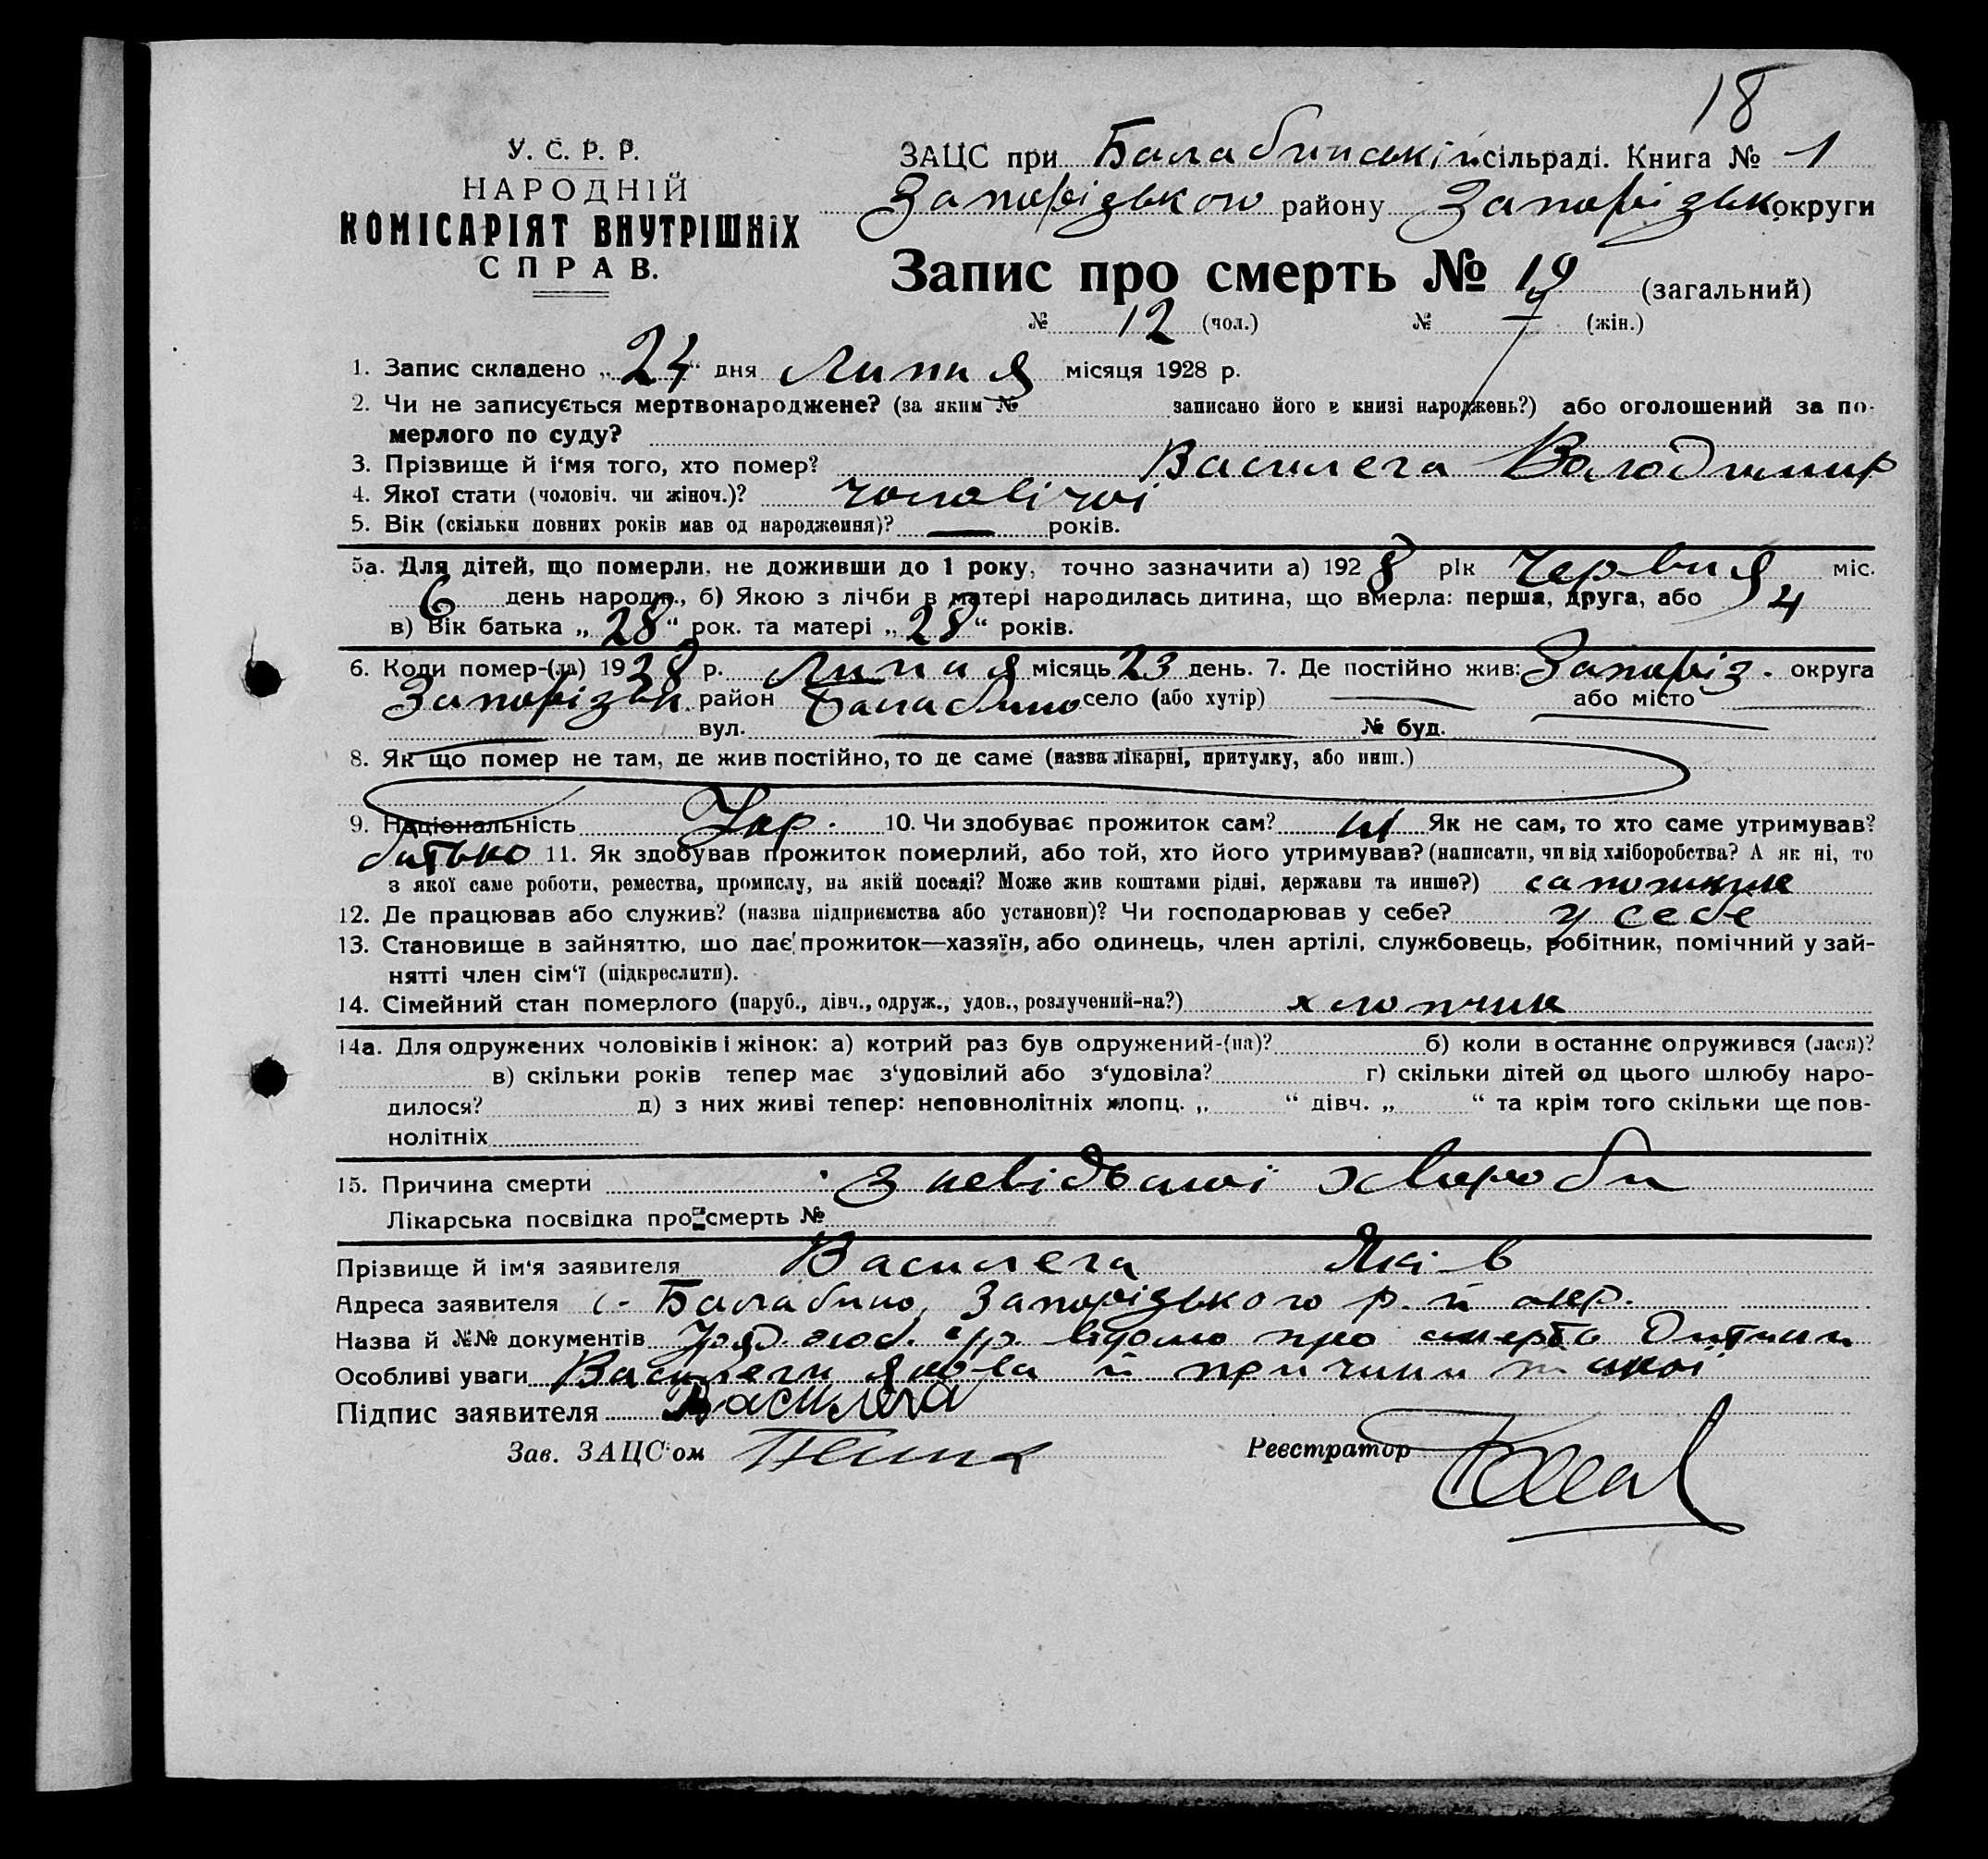 18
У. С. Р. Р.
НАРОДНІЙ
КОМІСАРІЯТ ВНУТРІШНІХ
СПРАВ.
ЗАЦС при Балабинській сільраді. Книга № 1
Запорізького району Запорізьк округи
Запис про смерть № 19 (загальний)
№ 12 (чол.) № (жін.)
1. Запис складено „24“ дня Липня місяця 1928 р.
2. Чи не записується мертвонароджене? (за яким № записано його в книзі народжень?) або оголошений за по-
мерлого по суду?
3. Прізвище й і'мя того, хто помер? Василега Володимир
4. Якої стати (чоловіч. чи жіноч.)? чоловічої
5. Вік (скільки повних років мав од народження)? — років.
5а. Для дітей, що померли, не доживши до 1 року, точно зазначити а) 1928 рік Червня міс.
6 день народж., б) Якою з лічби в матері народилась дитина, що вмерла: перша, друга, або 4
в) Вік батька „28“ рок. та матері „28“ років.
6. Коли помер-(ла) 1928 р. Липня місяць 23 день. 7. Де постійно жив: Запоріз. округа
Запорізьк. район Балабино село (або хутір) — або місто —
— вул. — № буд. —
8. Як що помер не там, де жив постійно, то де саме (назва лікарні, притулку, або инш.)
9. Національність Укр. 10. Чи здобуває прожиток сам? ні Як не сам, то хто саме утримував?
батько 11. Як здобував прожиток померлий, або той, хто його утримував? (написати, чи від хліборобства? А як ні, то
з якої саме роботи, ремества, промислу, на якій посаді? Може жив коштами рідні, держави та инше?) сапожник
12. Де працював або служив? (назва підприємства або установи)? Чи господарював у себе? у себе
13. Становище в зайняттю, що дає прожиток—хазяїн, або одинець, член артілі, службовець, робітник, помічний у зай-
нятті член сім'ї (підкреслити).
14. Сімейний стан померлого (паруб., дівч., одруж., удов., розлучений-на?) хлопчик
14а. Для одружених чоловіків і жінок: а) котрий раз був одружений-(на)? б) коли в останнє одружився (лася)?
в) скільки років тепер має з'удовілий або з'удовіла? г) скільки дітей од цього шлюбу наро-
дилося? д) з них живі тепер: неповнолітніх хлопц. „ “ дівч. „ “ та крім того скільки ще пов-
нолітніх
15. Причина смерти з невідомої хвороби
Лікарська посвідка про смерть №
Прізвище й ім'я заявителя Василега Яків
Адреса заявителя с. Балабино, Запорізького р. й окр.
Назва й №№ документів відомо про смерть дитини
Особливі уваги Василеги Якова й причини такої
Підпис заявителя Василега
Зав. ЗАЦС'ом
Реєстратор